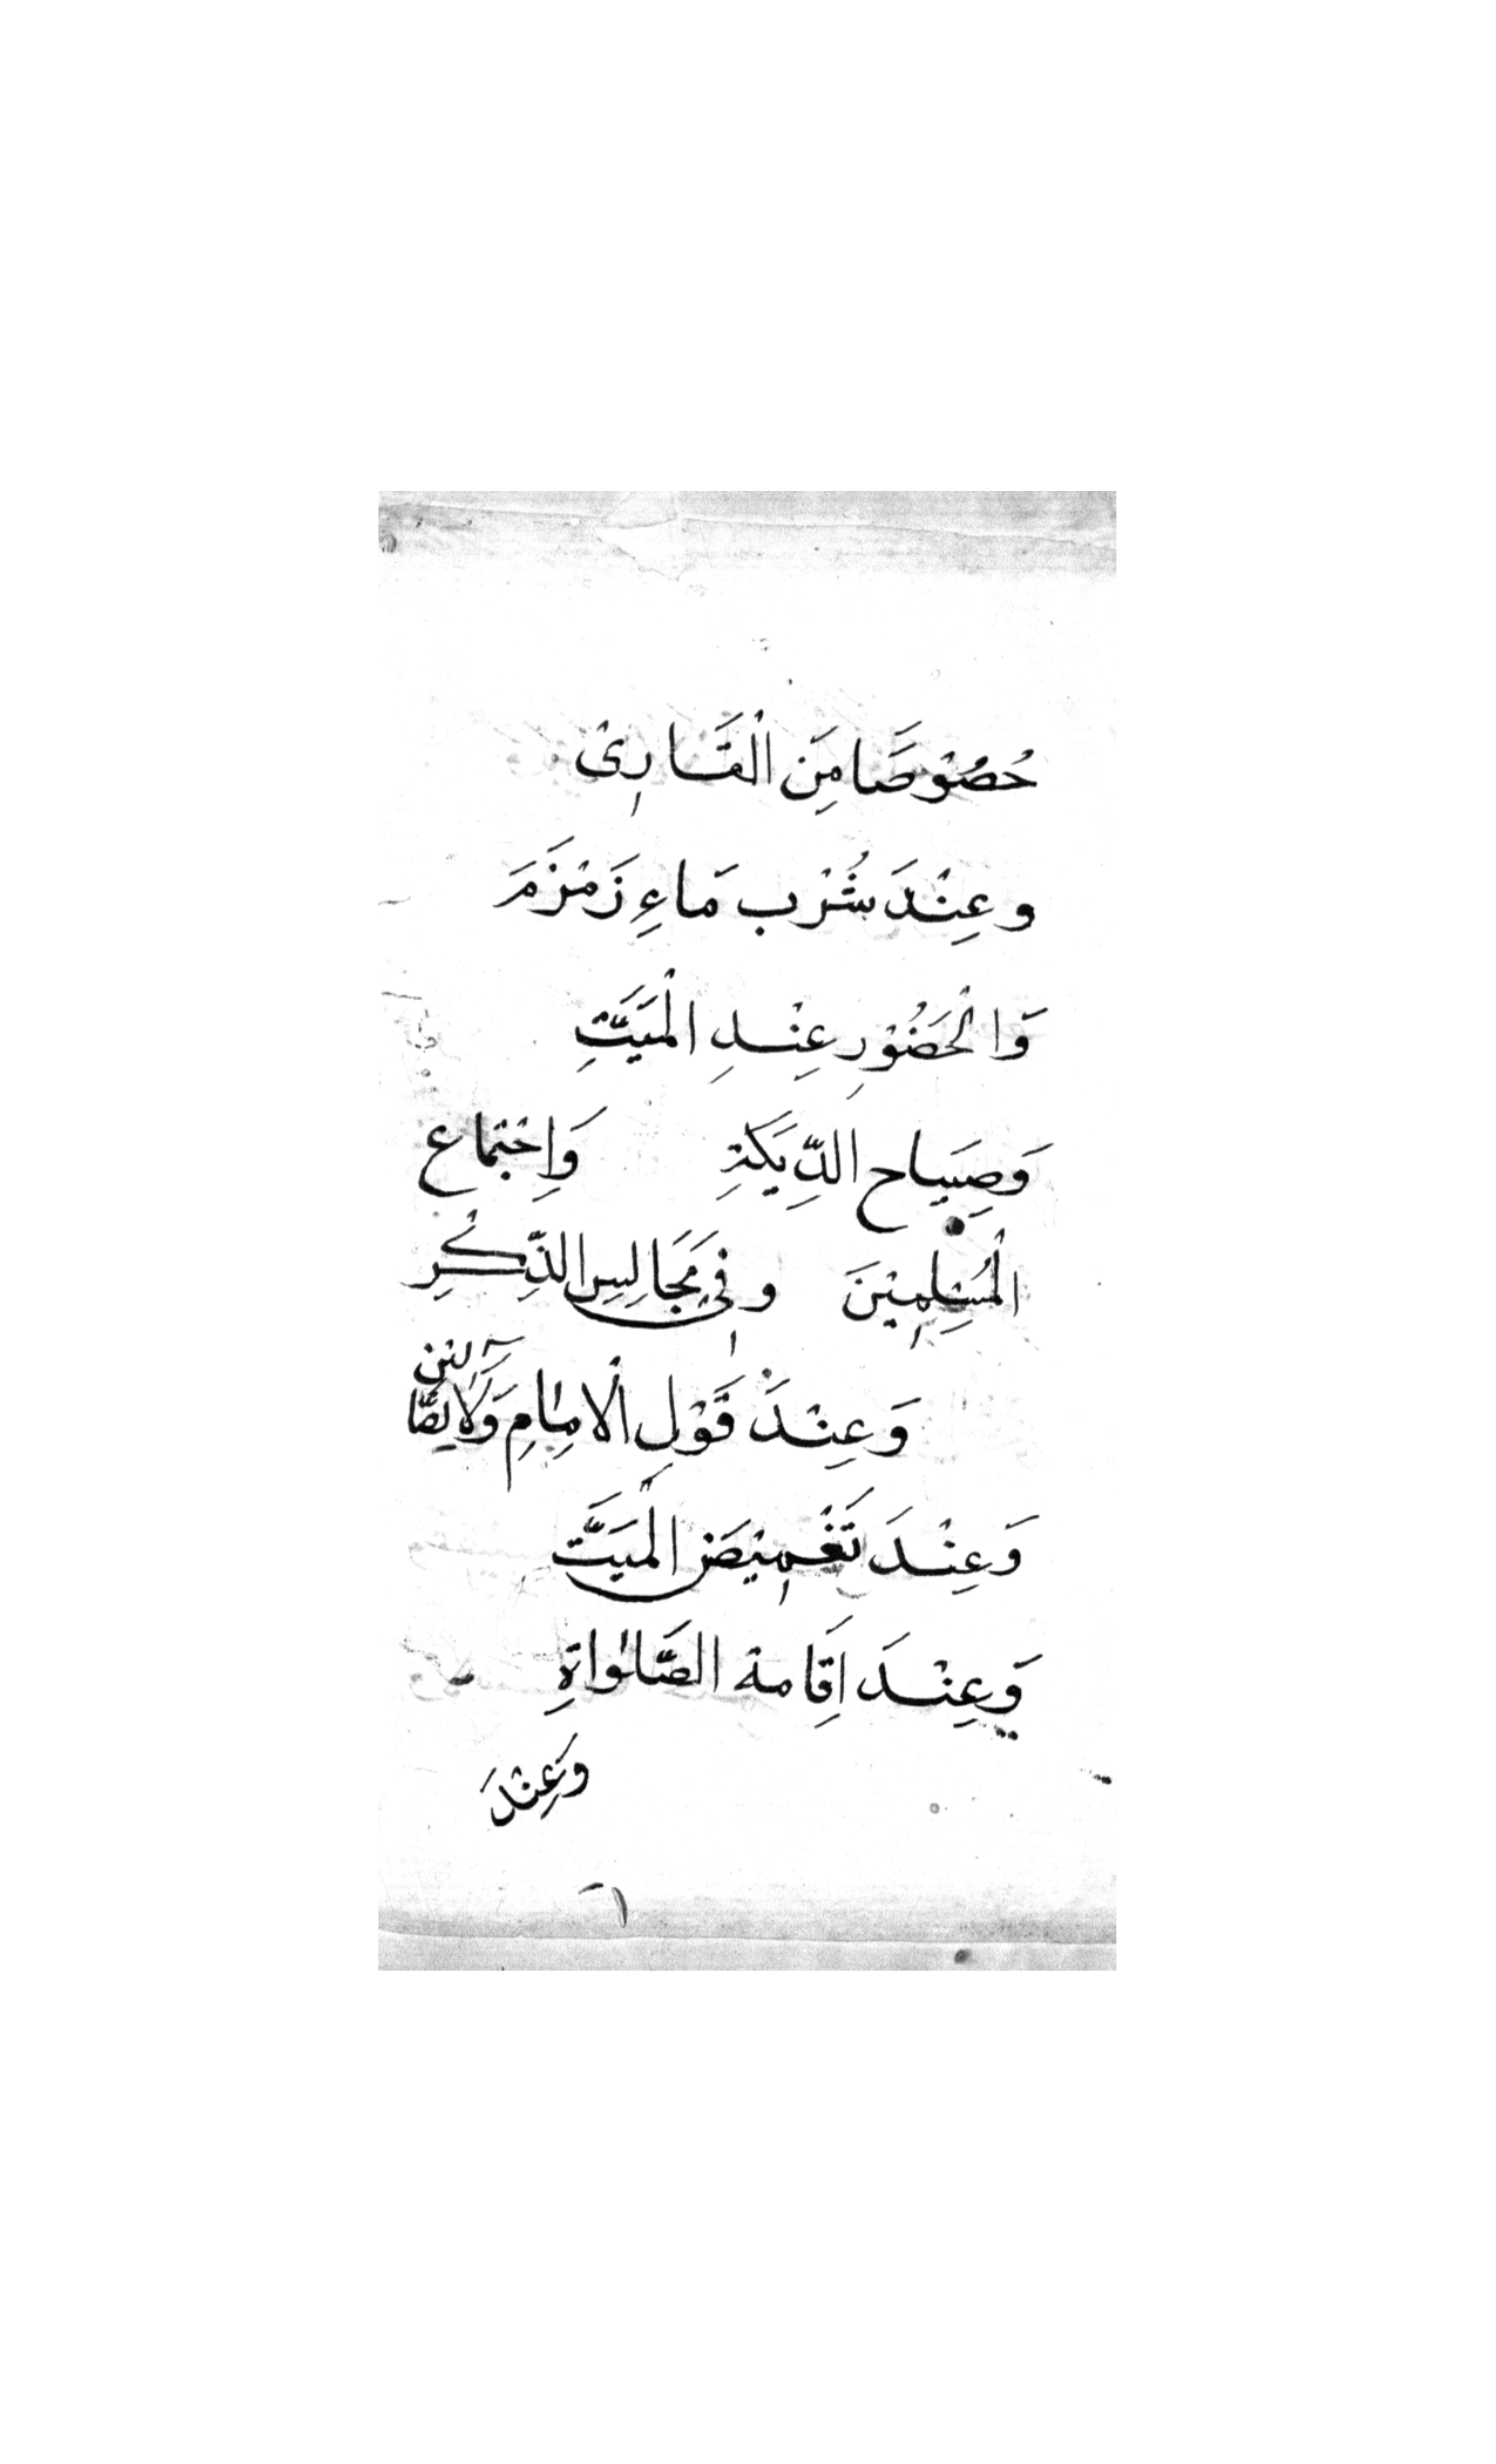 خُصُوْصًا مِّنَ الْقَارِىْ
وعِنْدَ شُرْب مَاءِ زَمْزَمَ
وَالْحَضُوْرِ عِنْدِ الْمَيِّتِ
وَصِيَاح الدِّيَكَةِ وَاِجْتِمَاع
الْمُسْلِمِيْنَ وفِيْ مَجَالِسِ الذِّكْرِ
وَعِنْدَ قَوْلِ الْاِمَامِ وَلَا الضَّآلِّيْن
وَعِنْدَ تَغْمِيْضِ الْمَيِّت
وَعِنْدَ اِقَامة الصَّلٰواةِ
وَعِنْدَ